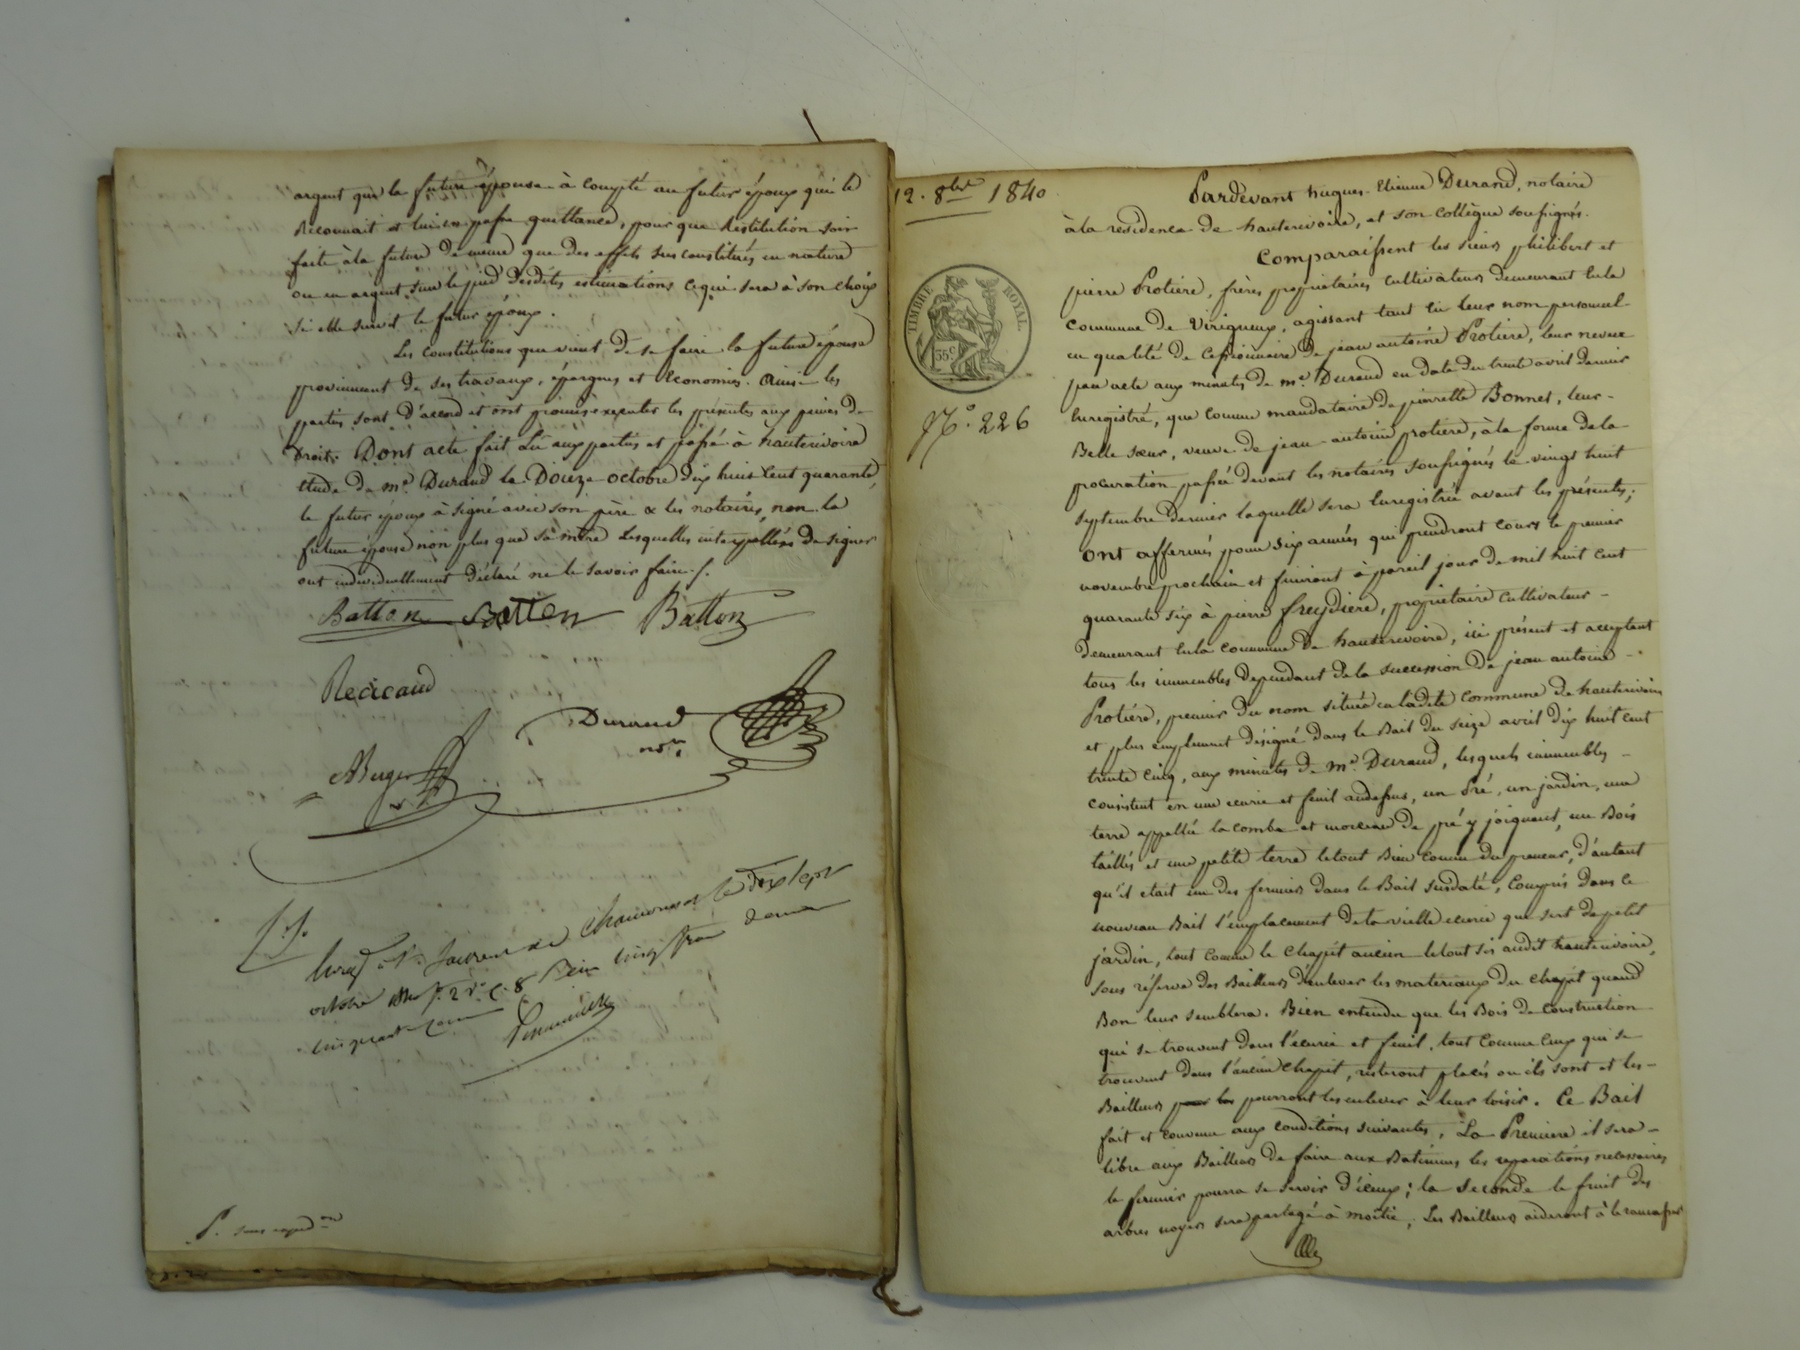 argent que la future épouse a compté au futur époux qui le
reconnait et lui en passe quittance, pour que Restitution soit
faite à la future de même que des effets sus constitués en nature
ou en argent sur le pied desdites estimations ce qui sera à son choix
si elle survit le futur époux.
Les constitutions que vient de se faire la future épouse
proviennent de ses travaux, épargnes et économies. Ainsi les
parties sont d'accord et ont promis exécuter les présentes aux peines de
Droit. Dont acte fait Lu aux parties et passé à hauterivoire
étude de me. Durand le Douze octobre dix huit cent quarante,
le futur époux à signé avec son père & les notaires, non la
future épouse non plus que sa mère Lesquelles interpellées de signer
ont individuellement déclaré ne le savoir faire./.
Batton Batton Batton
Durand
nore
octobre 1840 f. 2 r. c. 8
cinquante
P. sans expédon
12. 8bre 1840
TIMBRE ROYAL
35 C
No. 226
Pardevant hugues-Etienne Durand, notaire
à la résidence de hauterivoire, et son collègue soussignés.
Comparaissent les sieurs philibert et
pierre Protière, frères propriétaires cultivateurs demeurant en la
commune de Virigneux, agissant tant en leur nom personnel
en qualité de cessionnaire de jean antoine Protière, leur neveu
par acte aux minutes de me. Durand en date du trente avril dernier
Enregistré, que comme mandataire de pierrette Bonnet, leur
Belle sœur, veuve de jean-antoine protière, à la forme de la
procuration passée devant les notaires soussignés le vingt huit
septembre dernier laquelle sera Enregistrée avant les présentes;
ont affermés pour six années qui prendront cours le premier
novembre prochain et finiront à pareil jour de mil huit cent
quarante six à pierre freydière, propriétaire cultivateur
demeurant en la commune de hauterivoire, ici présent et acceptant
tous les immeubles dépendant de la succession de jean antoine
Protière, premier du nom situés en ladite commune de hauterivoire
et plus amplement désigné dans le Bail du seize avril dix huit cent
trente cinq, aux minutes de me. Durand, lesquels immeubles
consistent en une écurie et fenil audessus, un Pré, un jardin, une
terre appellée la combe et morceau de pré y joignant, un Bois
taillis et une petite terre letout Bien connu du preneur, d'autant
qu'il était un des fermiers dans le Bail susdaté, Compris dans ce
nouveau Bail l'emplacement de la vielle écurie qui sert de petit
jardin, tout comme le chapit ancien letout sis audit hauterivoire,
sous réserve des Bailleurs d'enlever les materiaux du chapit quand
Bon leur semblera. Bien entendu que les Bois de construction
qui se trouvent dans l'écurie et fenil, tout comme ceux qui se
trouvent dans l'ancien chapit, resteront placés ou ils sont et les
Bailleurs pourront les enlever à leur loisir. Ce Bail
fait et convenu aux conditions suivantes, La Première il sera
libre aux Bailleurs de faire aux Batimens les reparations necessaires
le fermier pourra se servir d'iceux; la seconde le fruit des
arbres noyers sera partagé à moitié, Les Bailleurs aideront à le ramasser